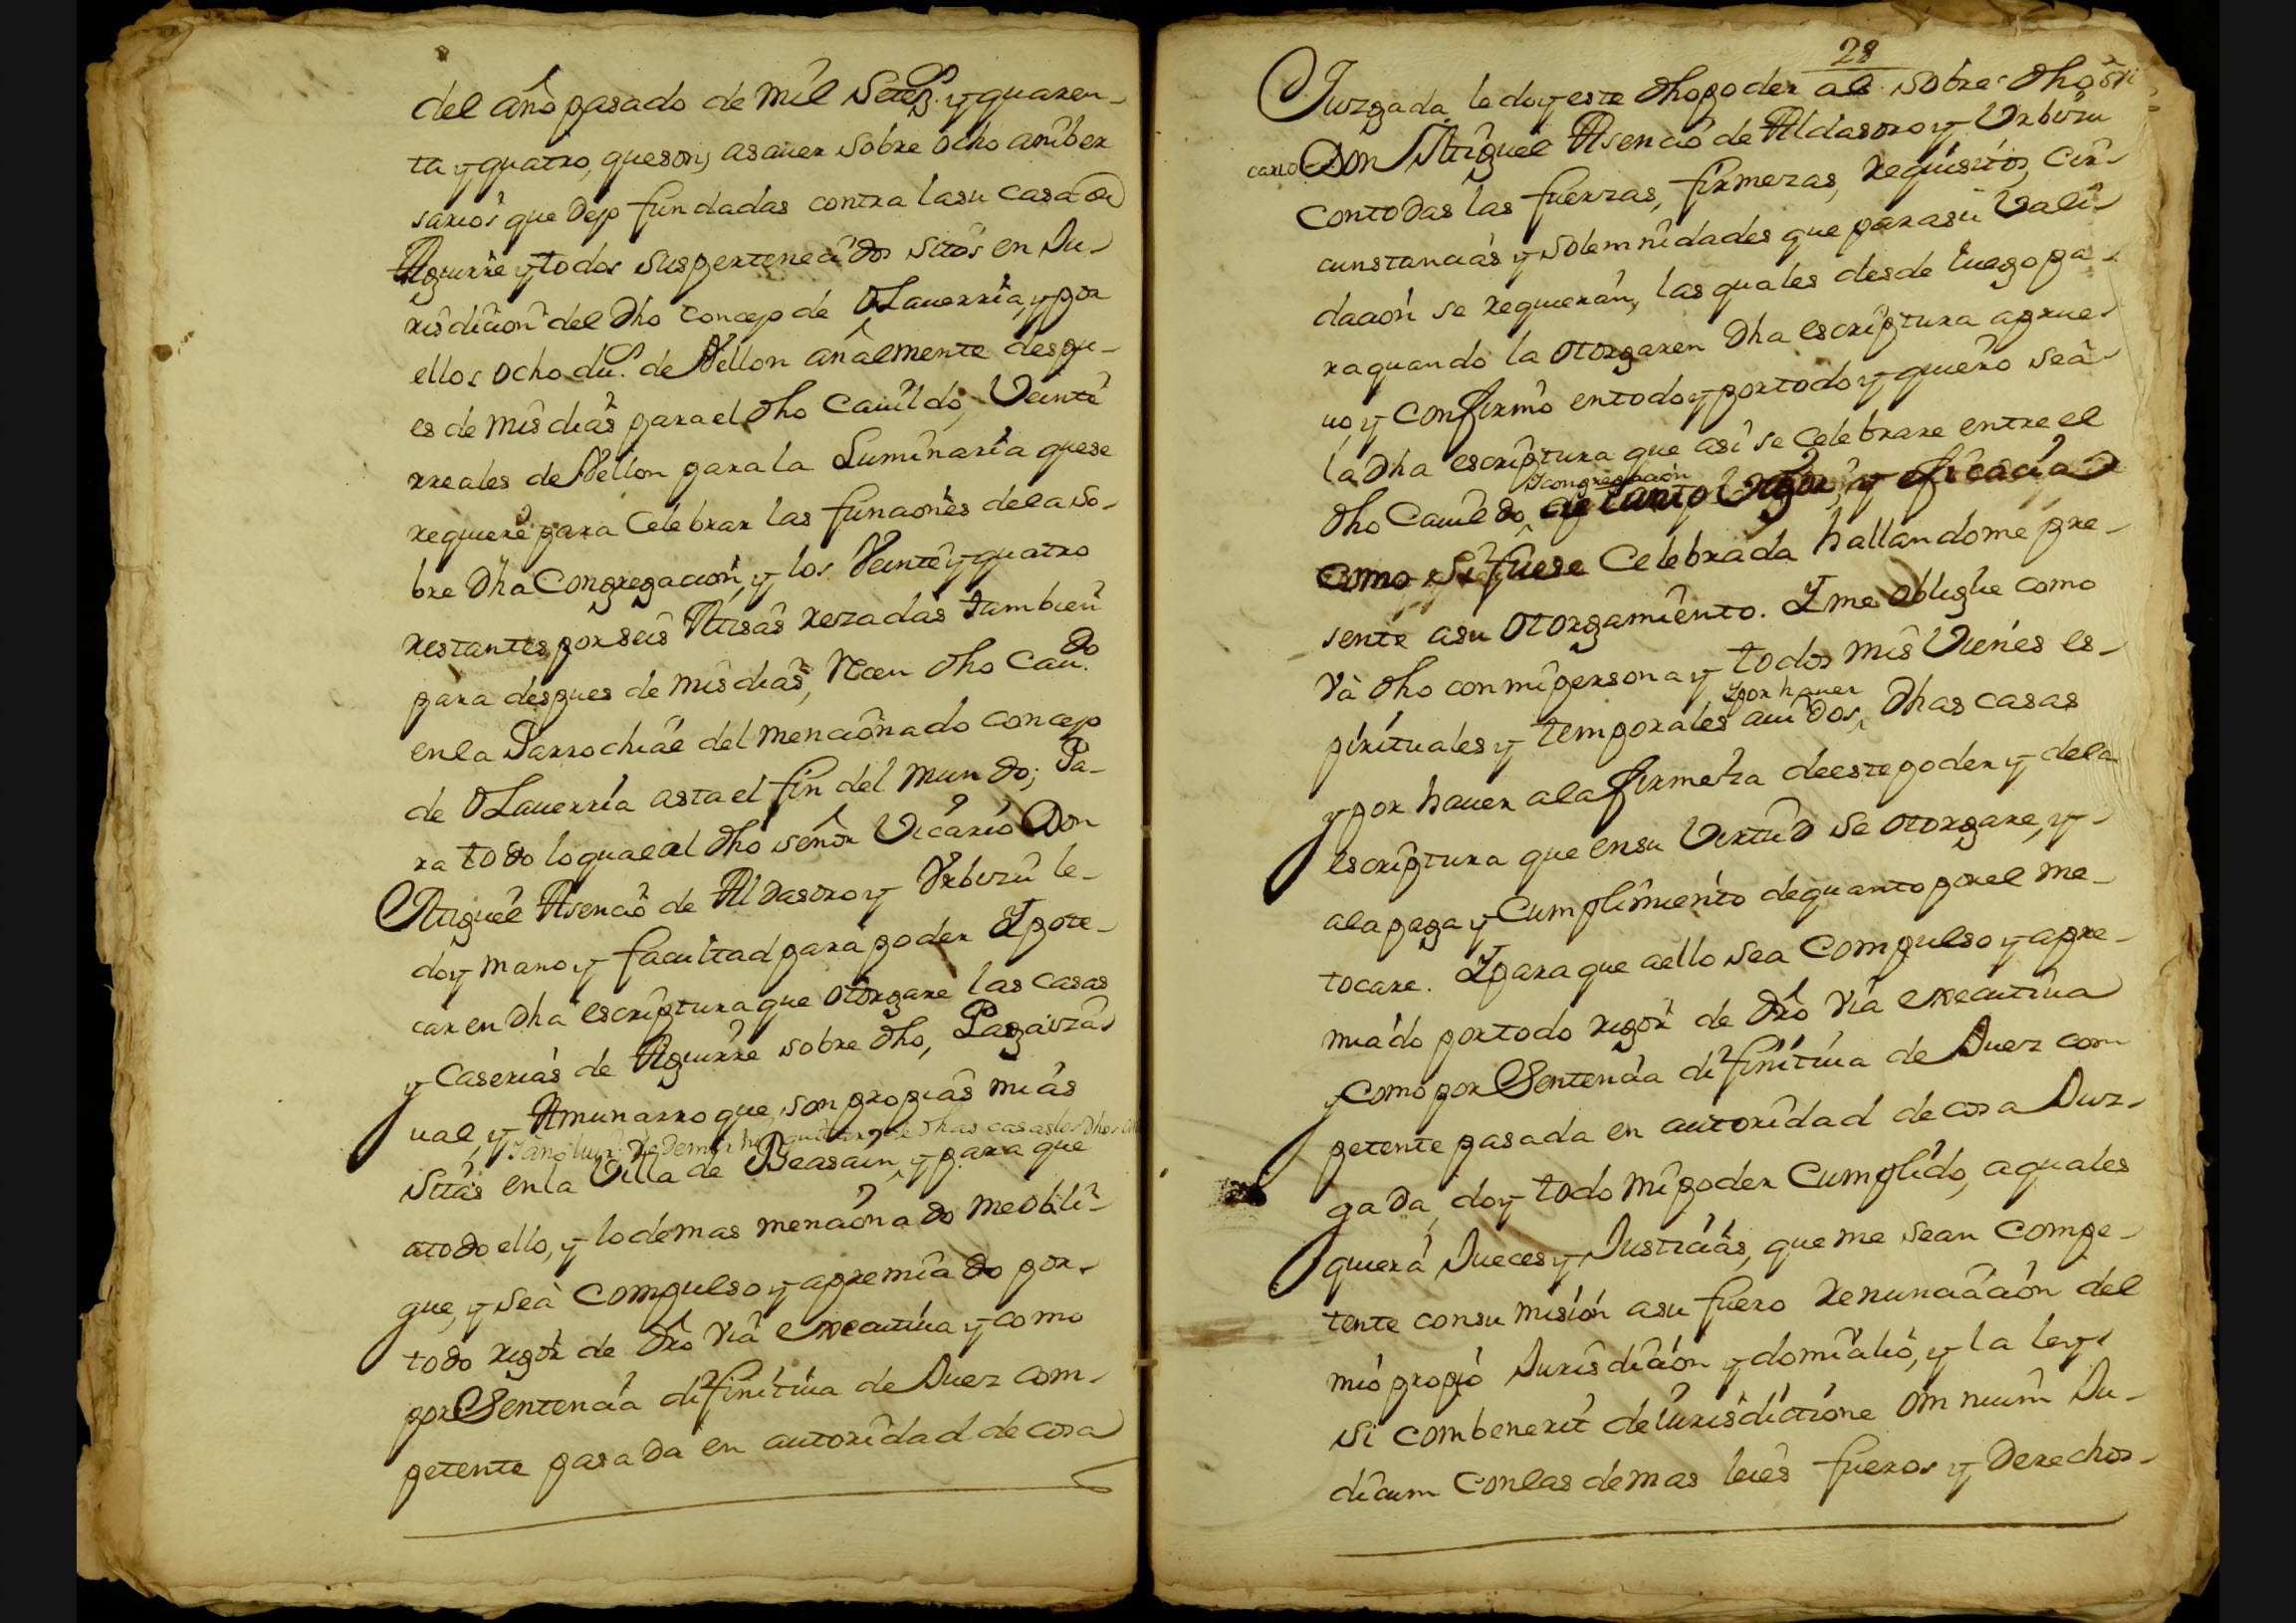 del año pasado de mil Setez.s y quaren-
ta y quatro, que son, asauer sobre ocho aniber
sarios que dejo fundadas contra la su casa de
Aguirre y todos sus pertenecidos sitos en Ju-
risdicion del dho concejo de Olauerria, y por
ellos ocho du.s de Vellon añalmente despu-
es de mis dias para el dho Cauildo, Veinte
rreales de Vellon para la Luminaria que se
requiere para Celebrar las funciones de la so-
bre dha Congregacion, y los Veinte y quatro
restantes por seis Misas rezadas tambien
para despues de mis dias, en dho Cau.do
en la Parrochial del mencionado concejo
de Olauerria asta el fin del mundo; Pa-
ra todo lo qual al dho señor Vicario Don
Miguel Asencio de Aldasoro y Vrbizu le
doy mano y facultad para poder Ypote-
car en dha escriptura que otorgare las casas
y Caserias de Aguirre sobre dho, Pagaiza-
ual, y Amunarro que son propias mias
dhas casas los dhos
sitas en la Villa de Beasain, y para que
a todo ello, y lo demas mencionado me obli-
gue, y sea compulso y apremiado por
todo rigor de dro via executiua y como
por Sentencia difinitiua de Juez com-
petente pasada en autoridad de cosa
28
Juzgada le doy este dho poder al sobre dho Vi
cario Don Miguel Asencio de Aldasoro y Vrbizu
con todas las fuerzas, firmezas, requisitos, cir-
cunstancias y solemnidades que para su Vali-
dacion se requieran, las quales desde luego pa-
ra quando la otorgaren dha escriptura aprue-
uo, y confirmo en todo y por todo y quiero sea
la dha escriptura que asi se celebrare entre el
y congregacion
dho Cauildo, de tanto Vigor, y eficacia
como si fuese Celebrada hallandome pre-
sente a su otorgamiento. Y me obligue como
va dho con mi persona y todos mis Vienes es-
y por hauer
pirituales y temporales auidos, dhas casas
y por hauer a la firmeza de este poder y de la
escriptura que en su Virtud se otorgare, y
a la paga y Cumplimiento de quanto por el me
tocare. Y para que a ello sea compulso y apre-
miado por todo rigor de dro via executiua
y como por Sentencia difinitiua de Juez com
petente pasada en autoridad de cosa Juz-
gada, doy todo mi poder Cumplido, a quales
quiera Jueces y Justicias, que me sean compe-
tente con su mision a su fuero renunciacion del
mio propio Jurisdicion y domicilio, y la ley
si combenerit de Jurisdictione omnium Ju-
dicum con las demas leies fueros y derechos